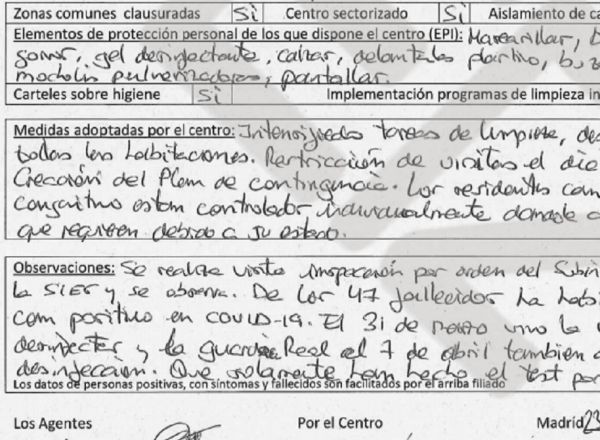 Zonas comunes clausuradas Sì Centro sectorizado Sì Aislamiento de ca
Elementos de protección personal de los que dispone el centro (EPI): Mascarillas, b
gorros, gel desinfectante, calzas, delantales plástico, b
mochilas pulverizadoras, pantallas.
Carteles sobre higiene Sì Implementación programas de limpieza in
Medidas adoptadas por el centro: Intensificado tareas de limpieza, des
todas las habitaciones. Restricción de visitas el día
Creación del Plan de contingencia. Los residentes con
estan controlados individualmente
que requieren debido a su estado.
Observaciones: Se realiza visita inspección por orden del Subin
la SIES y se observa. De los 47 fallecidos ha habi
con positivo en COVID-19. El 31 de marzo vino la
desinfectar y la guardia Real el 7 de abril tambien a
desinfección. Que solamente han hecho el test por
Los datos de personas positivas, con síntomas y fallecidos son facilitados por el arriba filiado
Los Agentes Por el Centro Madrid 23